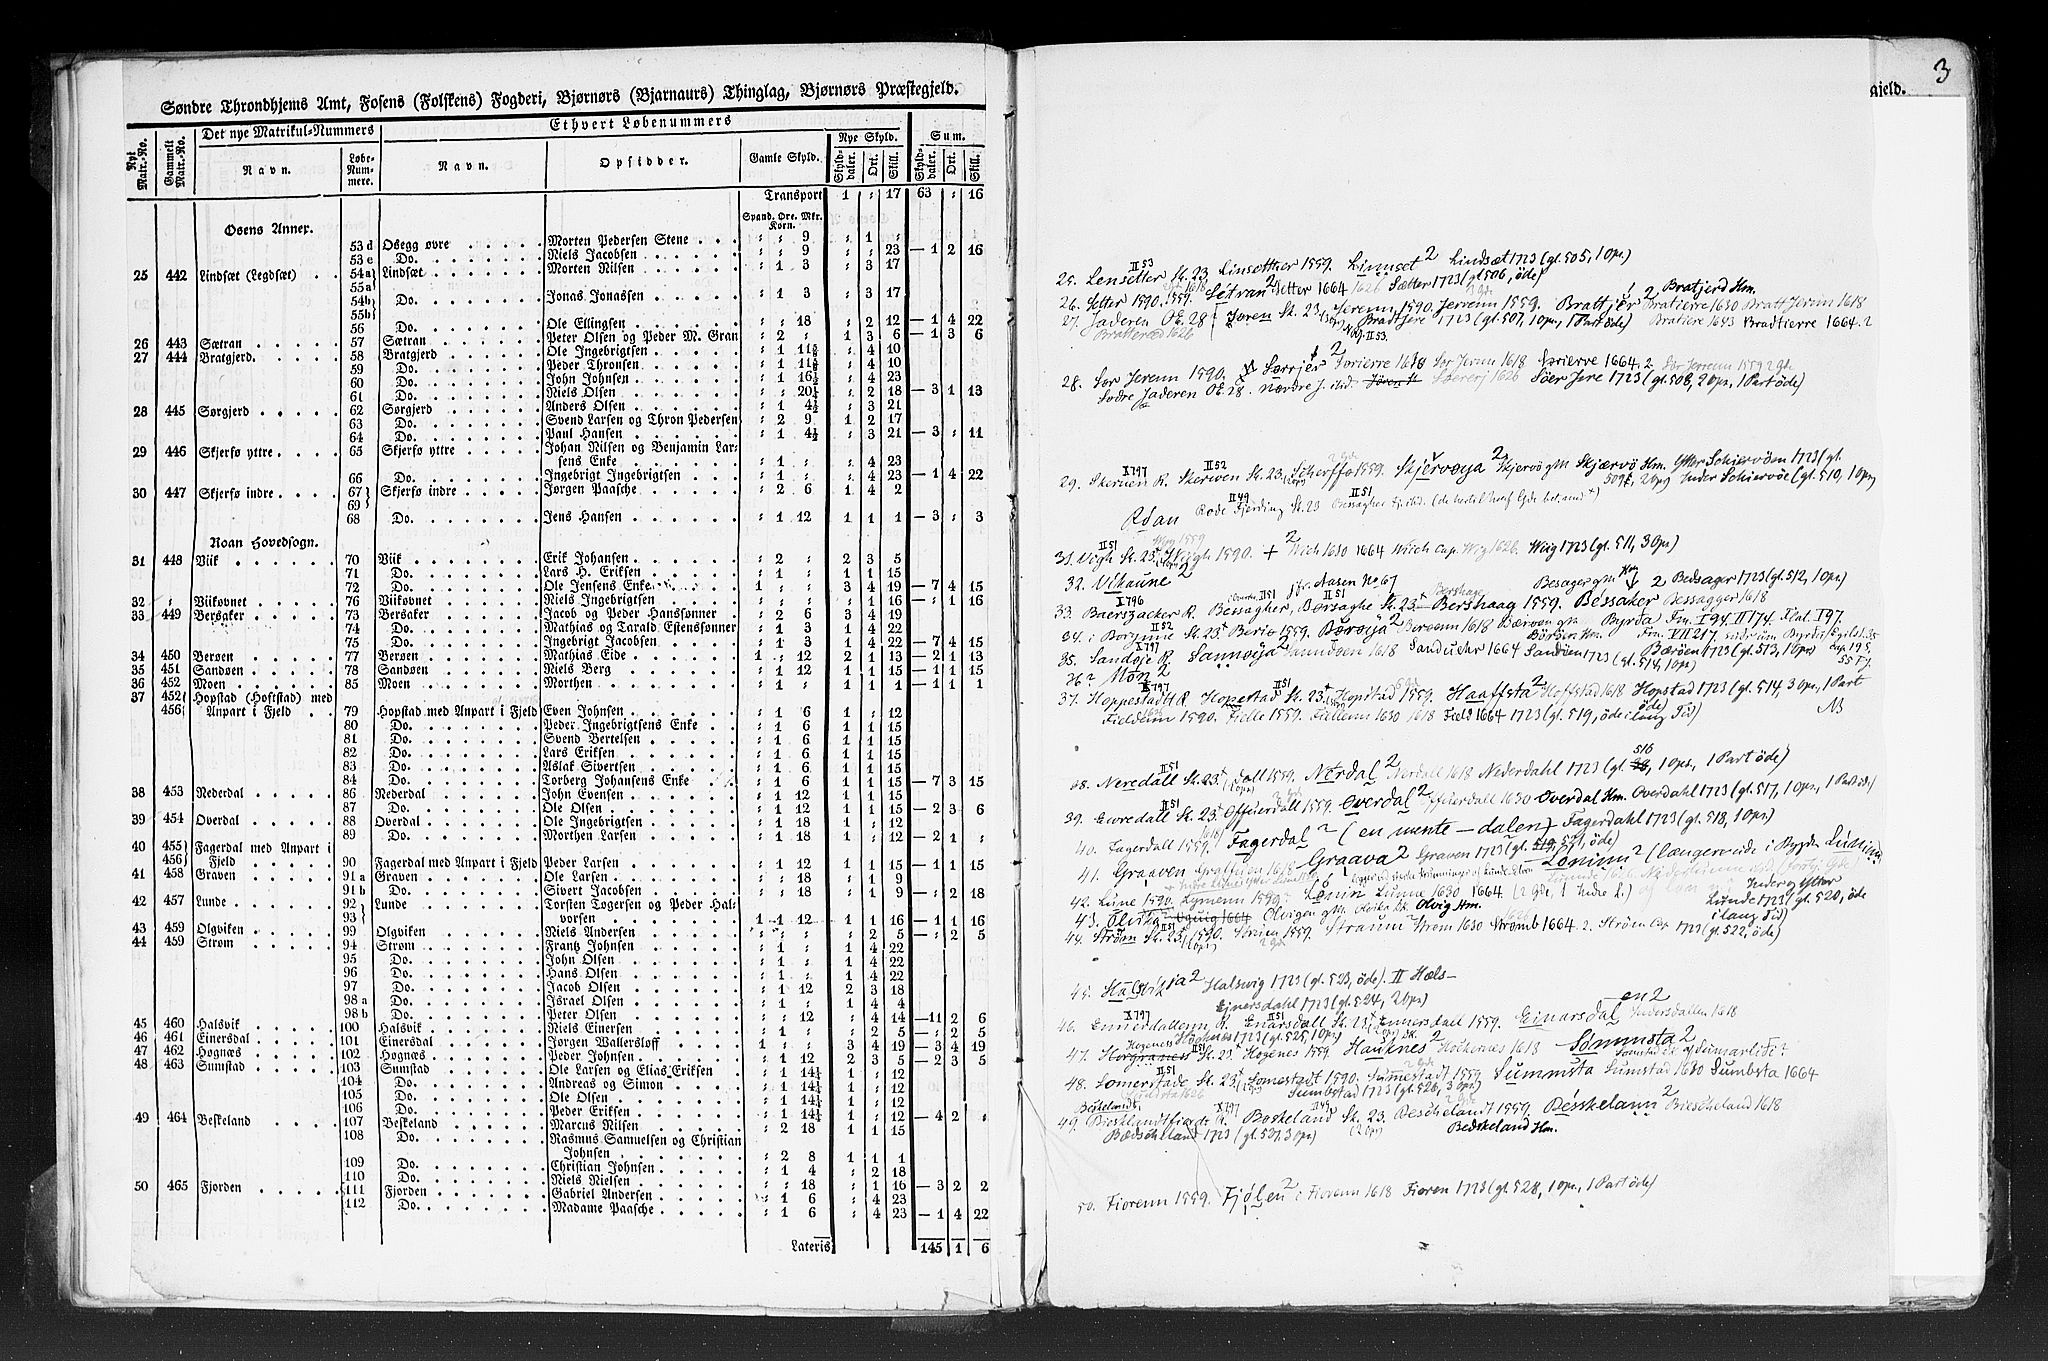 Søndre Throndhjems Amt, Fosens (Folskens) Fogderi, Bjørnørs (Bjarnaurs) Thinglag, Bjørnørs Præstegjeld.
Nyt Matr.-No. Gammelt Matr.-No. Det nye Matrikul-Nummers Ethvert Løbenummers Sum.
Navn. Løbe-Nummere. Navn. Opsidder. Gamle Skyld. Nye Skyld.
Skylddaler. Ort. Skill. Skylddaler. Ort. Skill.
Transport 1 : 17 63 : 16
Osens Annex. Spand. Ore. Mkr. Korn.
53 d Osegg øvre Morten Pedersen Stene : : 9 : 1 :
53 e Do. Niels Jacobsen : : 9 : : 23 — 1 2 16
25 442 Lindsæt (Legdsæt) 54a Lindsæt Morten Nilsen : 1 3 : 3 17
55a
54b Do. Jonas Jonassen : 1 3 : 3 17
55b
56 Do. Ole Ellingsen : : 18 : 2 12 — 1 4 22
26 443 Sætran 57 Sætran Peter Olsen og Peder M. Gran : 2 : 1 3 6 — 1 3 6
27 444 Bratgjerd. 58 Bratgjerd Ole Ingebrigtsen : 1 : 4 10
59 Do. Peder Thronsen : 1 : 4 10
60 Do. John Johnsen : 1 16½ : 4 23
61 Do. Niels Olsen : : : 2 18 — 3 1 13
28 445 Sørgjerd 62 Sørgjerd Anders Olsen : 1 4½ : 3 21
63 Do. Svend Larsen og Thron Pedersen : 2 9 1 2 17
64 Do. Paul Hansen : 1 4½ : 3 21 — 3 : 11
29 446 Skjerfø yttre 65 Skjerfø yttre Johan Nilsen og Benjamin Lar-
sens Enke : 1 : : 4 23
66 Do. Ingebrigt Ingebrigtsen : 1 : : 4 23 — 1 4 22
30 447 Skjerfø indre 67 Skjerfø indre Jørgen Paasche : 2 6 1 4 2
69
68 Do. Jens Hansen : 1 12 1 1 1 — 3 : 3
Roan Hovedsogn.
31 448 Viik 70 Viik Erik Johansen : 2 : 2 3 5
71 Do. Lars H. Eriksen : 1 : 1 1 15
72 Do. Ole Jensens Enke : 3 : 3 4 19 — 7 4 15
32 : Viikovnet 76 Viikovnet Niels Ingebrigtsen : : : : 1 16 — : 1 16
33 449 Bersaker 73 Bersaker Jacob og Peder Hanssønner : 2 6 3 4 19
74 Do. Mathias og Tarald Estenssønner : 1 3 1 4 22
75 Do. Ingebrigt Jacobsen : 1 3 1 4 22 — 7 4 15
34 450 Berøen 77 Berøen Mathias Eide 1 : 12 2 1 13 — 2 1 13
35 451 Sandøen 78 Sandøen Niels Berg : 1 12 1 1 15 — 1 1 15
36 452 Moen 85 Moen Morthen : 1 : 1 1 1 — 1 1 1
37 452 Hopstad (Hoftstad) med
456 Anpart i Fjeld 79 Hopstad med Anpart i Fjeld Even Johnsen : 1 6 1 : 12
80 Do. Peder Ingebrigtsens Enke : 1 6 1 1 15
81 Do. Svend Bertelsen : 1 6 1 1 15
82 Do. Lars Eriksen : 1 6 1 1 15
83 Do. Aslak Sivertsen : 1 6 1 1 15
84 Do. Torberg Johansens Enke : 1 6 1 1 15 — 7 3 15
38 453 Nederdal 86 Nederdal John Evensen : 1 12 1 1 15
87 Do. Ole Olsen : 1 12 1 1 15 — 2 3 6
39 454 Overdal 88 Overdal Ole Ingebrigtsen : 1 18 1 : 12
89 Do. Morthen Larsen : 1 18 1 : 12 — 2 1 :
40 455 Fagerdal med Anpart i
456 Fjeld 90 Fagerdal med Anpart i Fjeld Peder Larsen : 1 12 1 1 15 — 1 1 15
41 458 Graven 91 a Graven Ole Larsen : : 18 : 1 9
91 b Do. Sivert Jacobsen : : 18 : 1 9 — : 2 18
42 457 Lunde 92 Lunde Torsten Togersen og Peder Hal-
93 vorsen 1 1 12 1 1 16 — 1 1 16
43 459 Olgviken 99 Olgviken Niels Andersen : : : : 2 5 — : 2 5
44 459 Strøm 94 Strøm Frantz Johnsen : 1 : 1 4 22
95 Do. John Olsen : 1 : 1 4 22
96 Do. Hans Olsen : 1 : 1 4 22
97 Do. Jacob Olsen : 1 12 2 3 18
98 a Do. Israel Olsen : 1 : : 4 4
98 b Do. Peter Olsen : : 12 : 4 14 — 11 2 6
45 460 Halsvik 100 Halsvik Niels Einersen : 1 : : 2 5 — : 2 5
46 461 Einersdal 101 Einersdal Jørgen Wallersloff 1 : : 3 4 19 — 3 4 19
47 462 Hognæs 102 Hognæs Peder Johnsen : 1 12 2 3 5 — 2 3 5
48 463 Sumstad 103 Sumstad Ole Larsen og Elias Eriksen : 1 14½ 1 : 12
104 Do. Andreas og Simon : 1 14½ 1 : 12
105 Do. Ole Olsen : 1 14½ 1 : 12
106 Do. Peder Eriksen : 1 14½ 1 : 12 — 4 2 :
49 464 Beskeland 107 Beskeland Marcus Nilsen : 2 18 1 1 15
108 Do. Rasmus Samuelsen og Christian
Johnsen : 2 8 1 1 1
109 Do. Christian Johnsen : 1 4 : 2 18
110 Do. Niels Nielsen : : 18 : 1 16 — 3 2 2
50 465 Fjorden 111 Fjorden Gabriel Andersen : 1 6 : 4 23
112 Do. Madame Paasche : 1 6 : 4 23 — 1 4 22
Lateris 145 1 6
3
gjeld.
II 53
25. Lensetter Sk. 23 Linsetther 1559. Linnset 2 Lindsæt 1723 (gl. 505, 1 op.)
26. Setter 1590. 1559. Sétran 2 Setter 1664 1626 Sætter 1723 (gl 506, öde) Bratjerd Hm.
27. Jaderen OE. 28 Joren Sk. 23 Jerenn 1590. Jerrenn 1559. Brattjér 2 Bratierre 1630 Bratt Jerenn 1618
Bratteræd 1626 Bradtjere 1723 (gl. 507, 1 op., 1 Part öde) Bratiere 1643 Bradtierre 1664. 2
28. Sør Jerenn 1590. Særrjér 2 Sorierre 1618 Sor Jerenn 1618 1664. 2 Sör Jerenn 1559 2 Gde.
Sødre Jaderen OE. 28. Nørdre J. ibid. 1626 Söer Jere 1723 (gl. 508, 2 op., 1 Part öde)
X 797 II 52
29. Skeruen R. Skerwen Sk. 23. Scherffø 1559. Skjérvøya 2 Skjervø gm Skjærvö Hm. Ytter Schiervöen 1723 (gl.
509, 2 op) Inder Schiervöe (gl. 510, 1 op)
II 49 II 51
Roan Rode Fjerding Sk. 23
II 51 Wiig 1559
31. Vigh Sk. 23 Wiigh 1590. + 2 Wich 1630 1664 Wiich Cap. Wig 1626. Wiig 1723 (gl. 511, 3 op)
32. Vikaune 2 jfr. Aasen No. 67
X 796 II 51 II 51
33. Baerszacker R. Bessagher, Børsaghe Sk. 23 Bershaag 1559. Béssaker Bessagger 1618 Besager gm 2 Bedsager 1723 (gl. 512, 1 op)
II 52
34. i Borynne Sk. 23 Berio 1559. Bærøya 2 Berøenn 1618 Byrda Fm. I 94. II 174. Flat. I 97.
Fm. VII 217. Egilss. 35
Børöen 1723 (gl. 513, 1 op) Cap. 195.
X 797
35. Sandøje R. Sannøya 2 Sanndøen 1618 1664 Sandöen 1723 (gl. 514, 1 op)
36? Mon 2
X 797 II 51
37. Hoppestadt R. Hopestad Sk. 23 Hopstad 1559. Haaffsta 2 Hoffstad 1618 Hopstad 1723 (gl. 514, 3 op, 1 Part öde)
Fieldem 1590. Fielle 1559. Fiellenn 1630 1618 Field 1664 1723 (gl. 519, öde i lang Tid) NB
II 51 516
38. Neredall Sk. 23 dall 1559. Nérdal 2 Nerdall 1618 Nederdahl 1723 (gl. , 1 op., 1 Part öde)
II 51
39. Euredall Sk. 23 Offuerdall 1559. Overdal 2 Offuerdall 1630 Overdal Hm. Overdahl 1723 (gl. 517, 1 op., 1 Part öd.)
40. Fagerdall 1559. 1618 Fagerdal 2 (en mente - dalen) Fagerdahl 1723 (gl. 518, 1 op)
41. Graaven 1618 Graava 2 Graven 1723 (gl. 521, öde)
42. Lune 1590. Lymenn 1559. Lønin Lunne 1630 1664 (2 Gde, 1 Indre L.) Inder og Ytter
43. Olvika 2 1664 Olvigen gm Olvika sk. Olvig Hm. Lunde 1723 (gl. 520, öde
i lang Tid)
II 51
44. Strøm Sk. 23 1590. Strøm 1559. Straum 2 Strøm 1630 Strömb 1664. 2. Ström Cap 1723 (gl. 522, öde)
45. Halsvika 2 Halswig 1723 (gl. 523, öde). II Hæls-
Einersdahl 1723 (gl. 524, 2 op)
X 797 II 51
46. Ennerdallenn R. Enarsdall Sk. 23 Ennersdall 1559. Einarsdal en 2 Indersdallen 1618
Hogenes Höcknes 1723 (gl. 525, 1 op)
47. Sk. 23 Hogenes 1559 Hauknes 2 Hochernes 1618 Sommsta 2
II 51
48. Somerstade Sk. 23 Somestadt 1590. Summestadt 1559 Summsta Sumstad 1630 Sumbsta 1664
Sumbstad 1723 (gl. 526, 3 op.)
Beskelandt, X 797 II 49
49. R. Boskeland Sk. 23. Beschelandt 1559. Bésskelann 2 Biescheland 1618
Bædscheland 1723 (gl. 527, 3 op) (2 op) Bedskeland Hm.
50. Fiorenn 1559. Fjolen 2 i Fiorenn 1618 Fioren 1723 (gl. 528, 1 op., 1 Part öde)